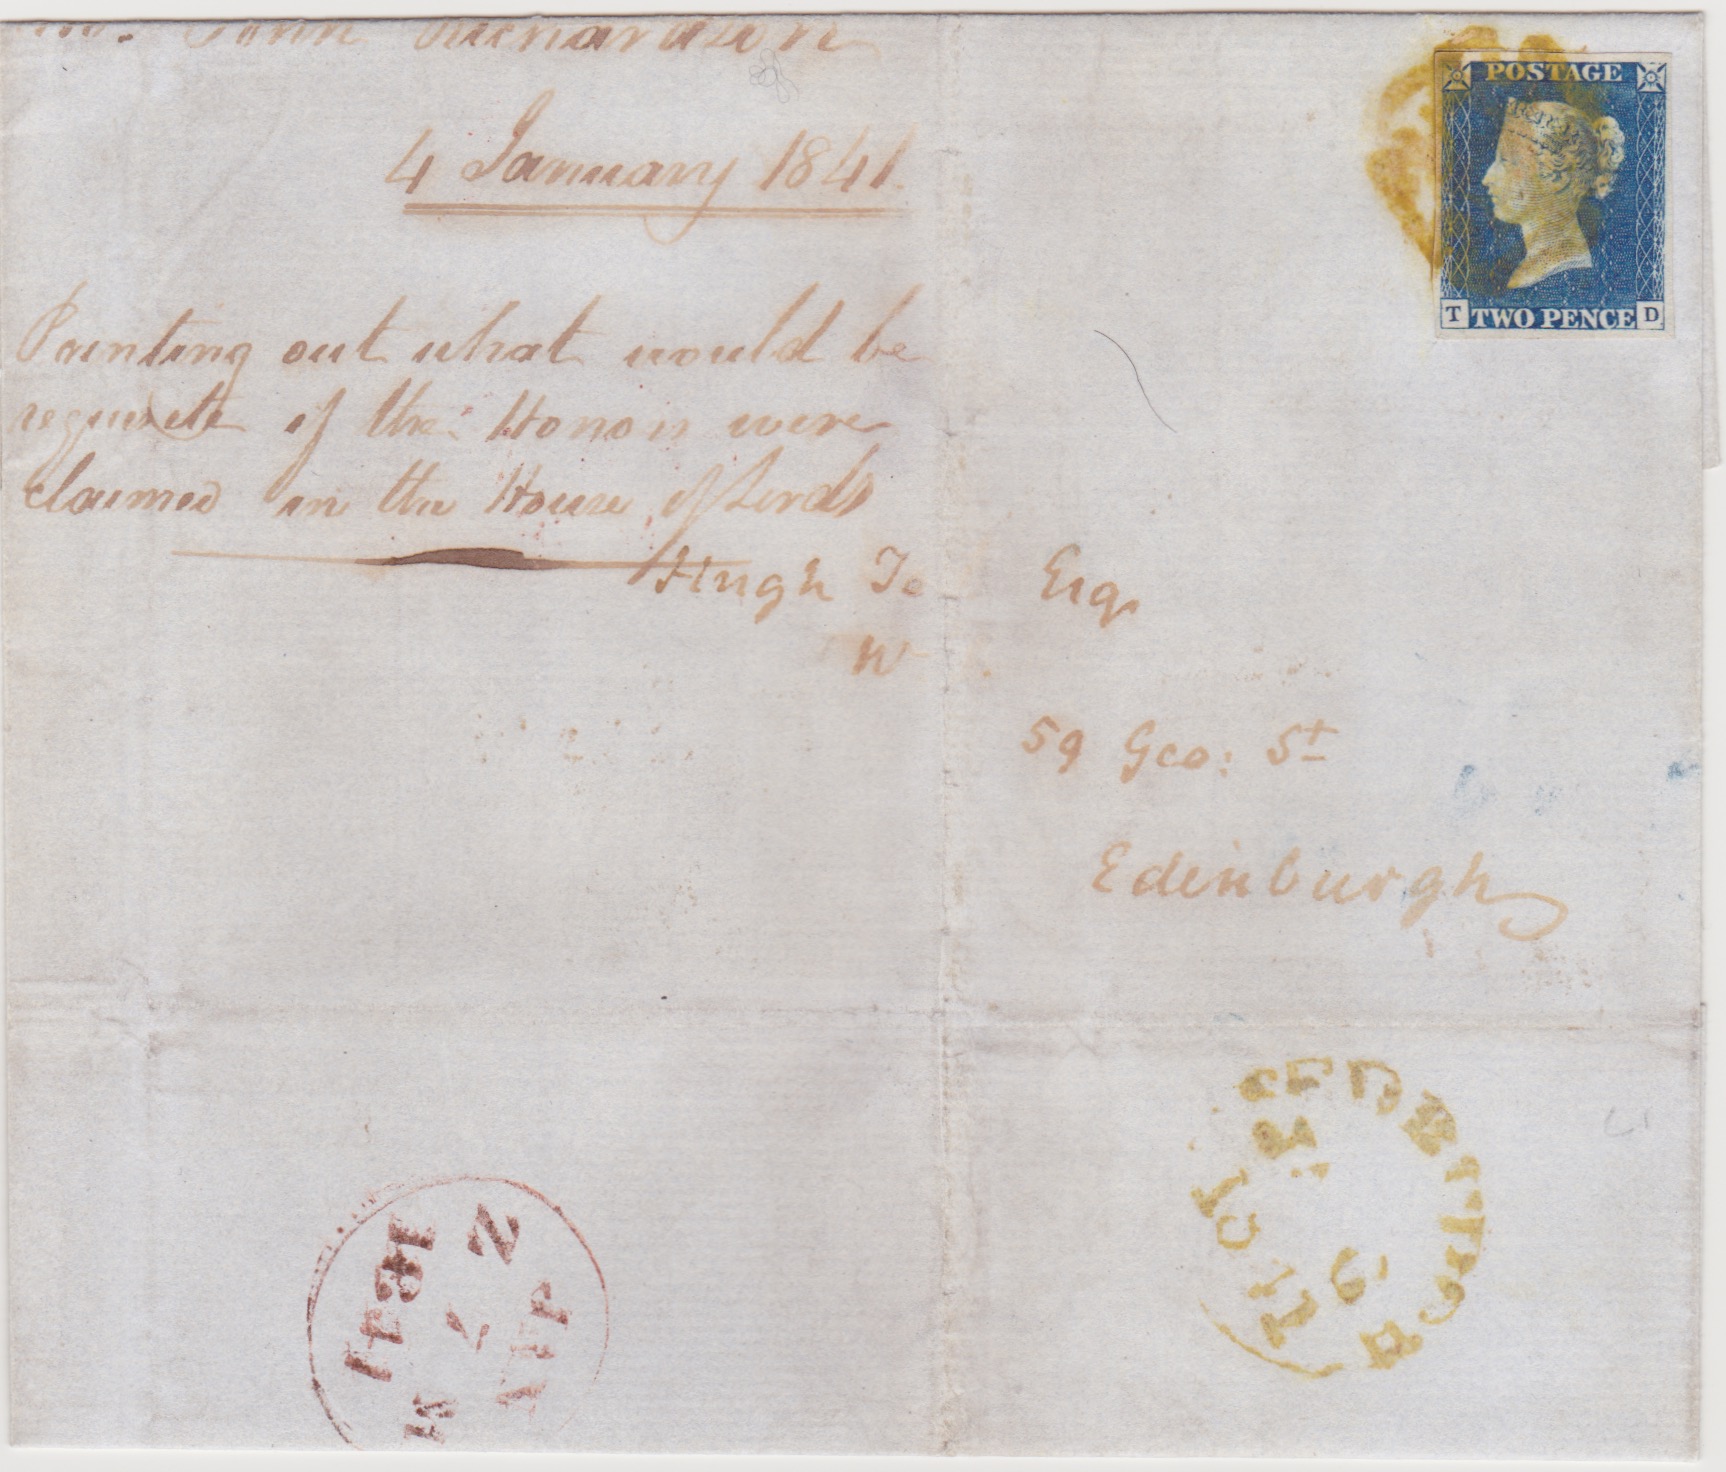 John Richardson
4 January 1841.
Pointing out what would be
requisite if the Honors were
claimed in the House of Lords
Hugh
Esq.
W
59 Geo: St
Edinburgh
POSTAGE
T TWO PENCE D
EDINBURGH
1841
7
JAN